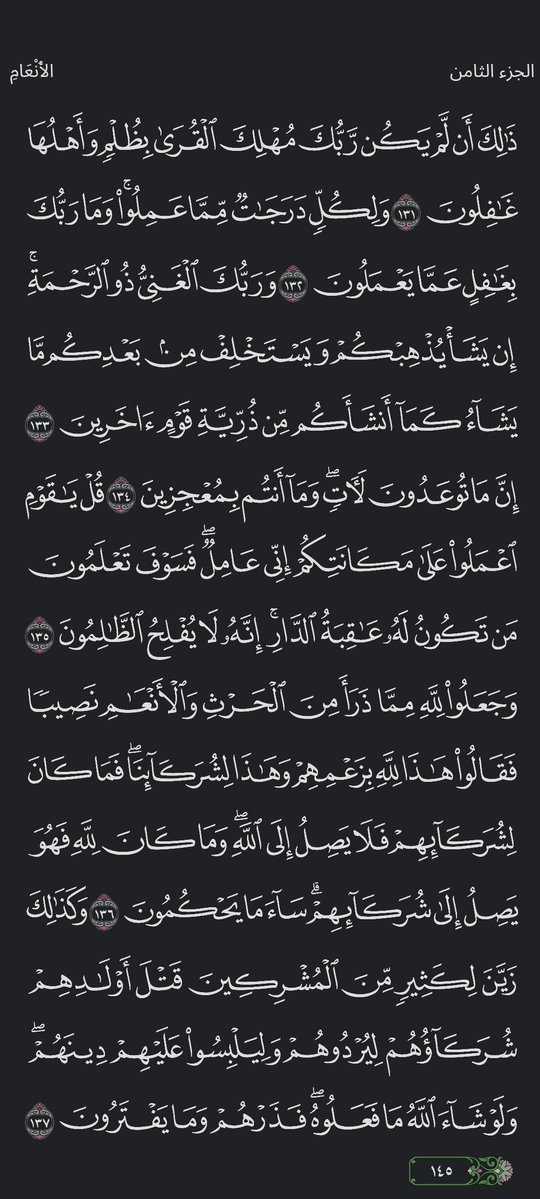 الجزء الثامن
الأنْعَامِ
ذَٰلِكَ أَن لَّمْ يَكُن رَّبُّكَ مُهْلِكَ ٱلْقُرَىٰ بِظُلْمٍ وَأَهْلُهَا
غَٰفِلُونَ ١٣١ وَلِكُلٍّ دَرَجَٰتٌ مِّمَّا عَمِلُوا۟ۚ وَمَا رَبُّكَ
بِغَٰفِلٍ عَمَّا يَعْمَلُونَ ١٣٢ وَرَبُّكَ ٱلْغَنِىُّ ذُو ٱلرَّحْمَةِۚ
إِن يَشَأْ يُذْهِبْكُمْ وَيَسْتَخْلِفْ مِنۢ بَعْدِكُم مَّا
يَشَآءُ كَمَآ أَنشَأَكُم مِّن ذُرِّيَّةِ قَوْمٍ ءَاخَرِينَ ١٣٣
إِنَّ مَا تُوعَدُونَ لَءَاتٍۖ وَمَآ أَنتُم بِمُعْجِزِينَ ١٣٤ قُلْ يَٰقَوْمِ
ٱعْمَلُوا۟ عَلَىٰ مَكَانَتِكُمْ إِنِّى عَامِلٌۖ فَسَوْفَ تَعْلَمُونَ
مَن تَكُونُ لَهُۥ عَٰقِبَةُ ٱلدَّارِۚ إِنَّهُۥ لَا يُفْلِحُ ٱلظَّٰلِمُونَ ١٣٥
وَجَعَلُوا۟ لِلَّهِ مِمَّا ذَرَأَ مِنَ ٱلْحَرْثِ وَٱلْأَنْعَٰمِ نَصِيبًا
فَقَالُوا۟ هَٰذَا لِلَّهِ بِزَعْمِهِمْ وَهَٰذَا لِشُرَكَآئِنَاۖ فَمَا كَانَ
لِشُرَكَآئِهِمْ فَلَا يَصِلُ إِلَى ٱللَّهِۖ وَمَا كَانَ لِلَّهِ فَهُوَ
يَصِلُ إِلَىٰ شُرَكَآئِهِمْۗ سَآءَ مَا يَحْكُمُونَ ١٣٦ وَكَذَٰلِكَ
زَيَّنَ لِكَثِيرٍ مِّنَ ٱلْمُشْرِكِينَ قَتْلَ أَوْلَٰدِهِمْ
شُرَكَآؤُهُمْ لِيُرْدُوهُمْ وَلِيَلْبِسُوا۟ عَلَيْهِمْ دِينَهُمْۖ
وَلَوْ شَآءَ ٱللَّهُ مَا فَعَلُوهُۖ فَذَرْهُمْ وَمَا يَفْتَرُونَ ١٣٧
١٤٥